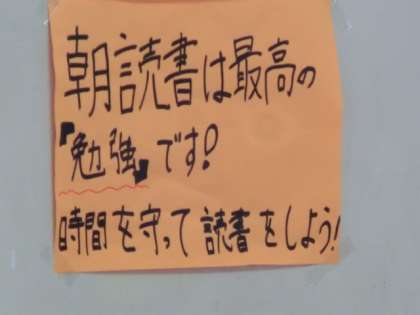 朝読書は最高の
『勉強』です!
時間を守って読書をしよう!